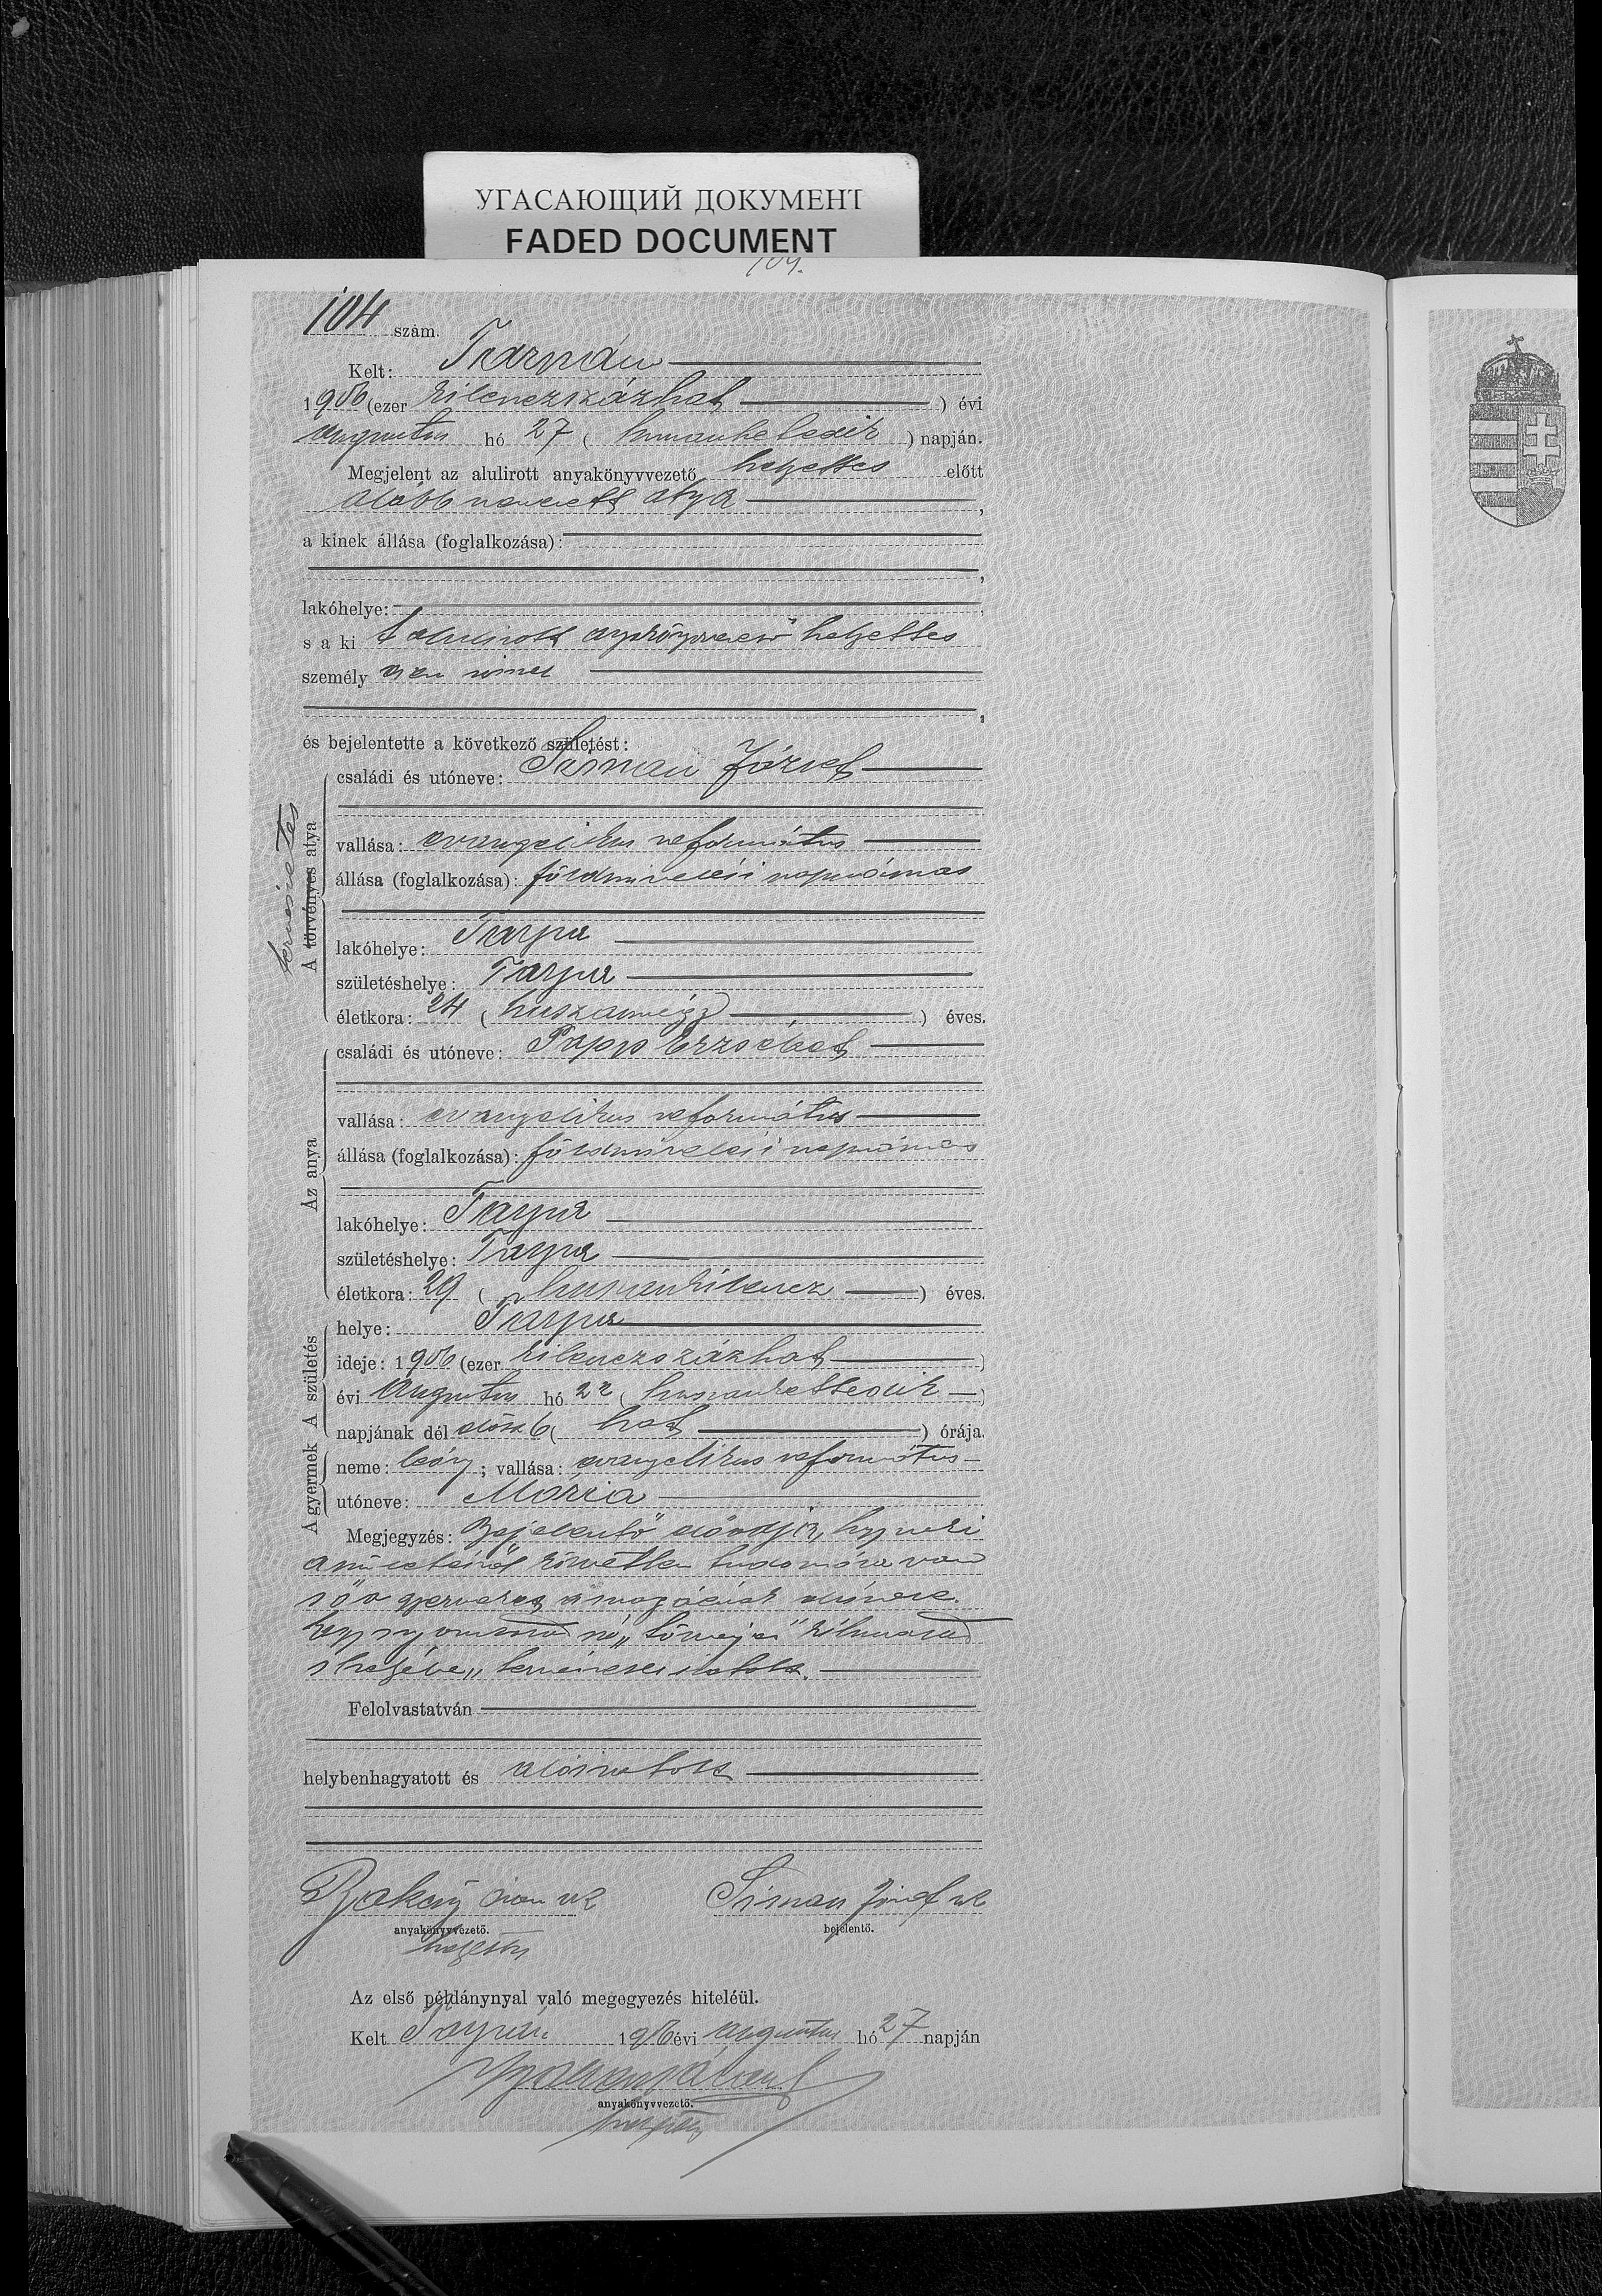 УГАСАЮЩИЙ ДОКУМЕНТ
FADED DOCUMENT
104.
104 szám.
Kelt:
1906 (ezer kilenczszázhat) évi
augusztus hó 27 ( ) napján.
Megjelent az alulirott anyakönyvvezető helyettes előtt
alább nevezett atya,
a kinek állása (foglalkozása):
lakóhelye:
s a ki alulirott helyettes
személy
és bejelentette a következő születést:
természetes
A törvényes atya
családi és utóneve: Siman József
vallása: evangelikus református
állása (foglalkozása): földmivelési napszámos
lakóhelye: Tarpa
születéshelye: Tarpa
életkora: 24 (huszonnégy) éves.
Az anya
családi és utóneve: Papp Erzsébet
vallása: evangelikus református
állása (foglalkozása): földmivelési napszámos
lakóhelye: Tarpa
születéshelye: Tarpa
életkora: 29 (huszonkilencz) éves.
A születés
helye: Tarpa
ideje: 1906 (ezer kilenczszázhat)
évi augusztus hó 22 (huszonkettedik)
napjának dél előtt 6 (hat) órája.
A gyermek
neme: leány; vallása: evangelikus református
utóneve: Mária
Megjegyzés: Bejelentő előadja, hogy neki
a születésről közvetlen tudomása van
s ő a gyermeket magáénak elismeri.
Egy nyomtatott szó „törvényes" kihuzva
s helyébe „természetes" iratott.
Felolvastatván
helybenhagyatott és aláiratott
Siman József sk
anyakönyvvezető.
bejelentő.
helyettes
Az első példánynyal való megegyezés hiteléül.
Kelt Tarpán 1906 évi augusztus hó 27 napján
anyakönyvvezető.
helyettes